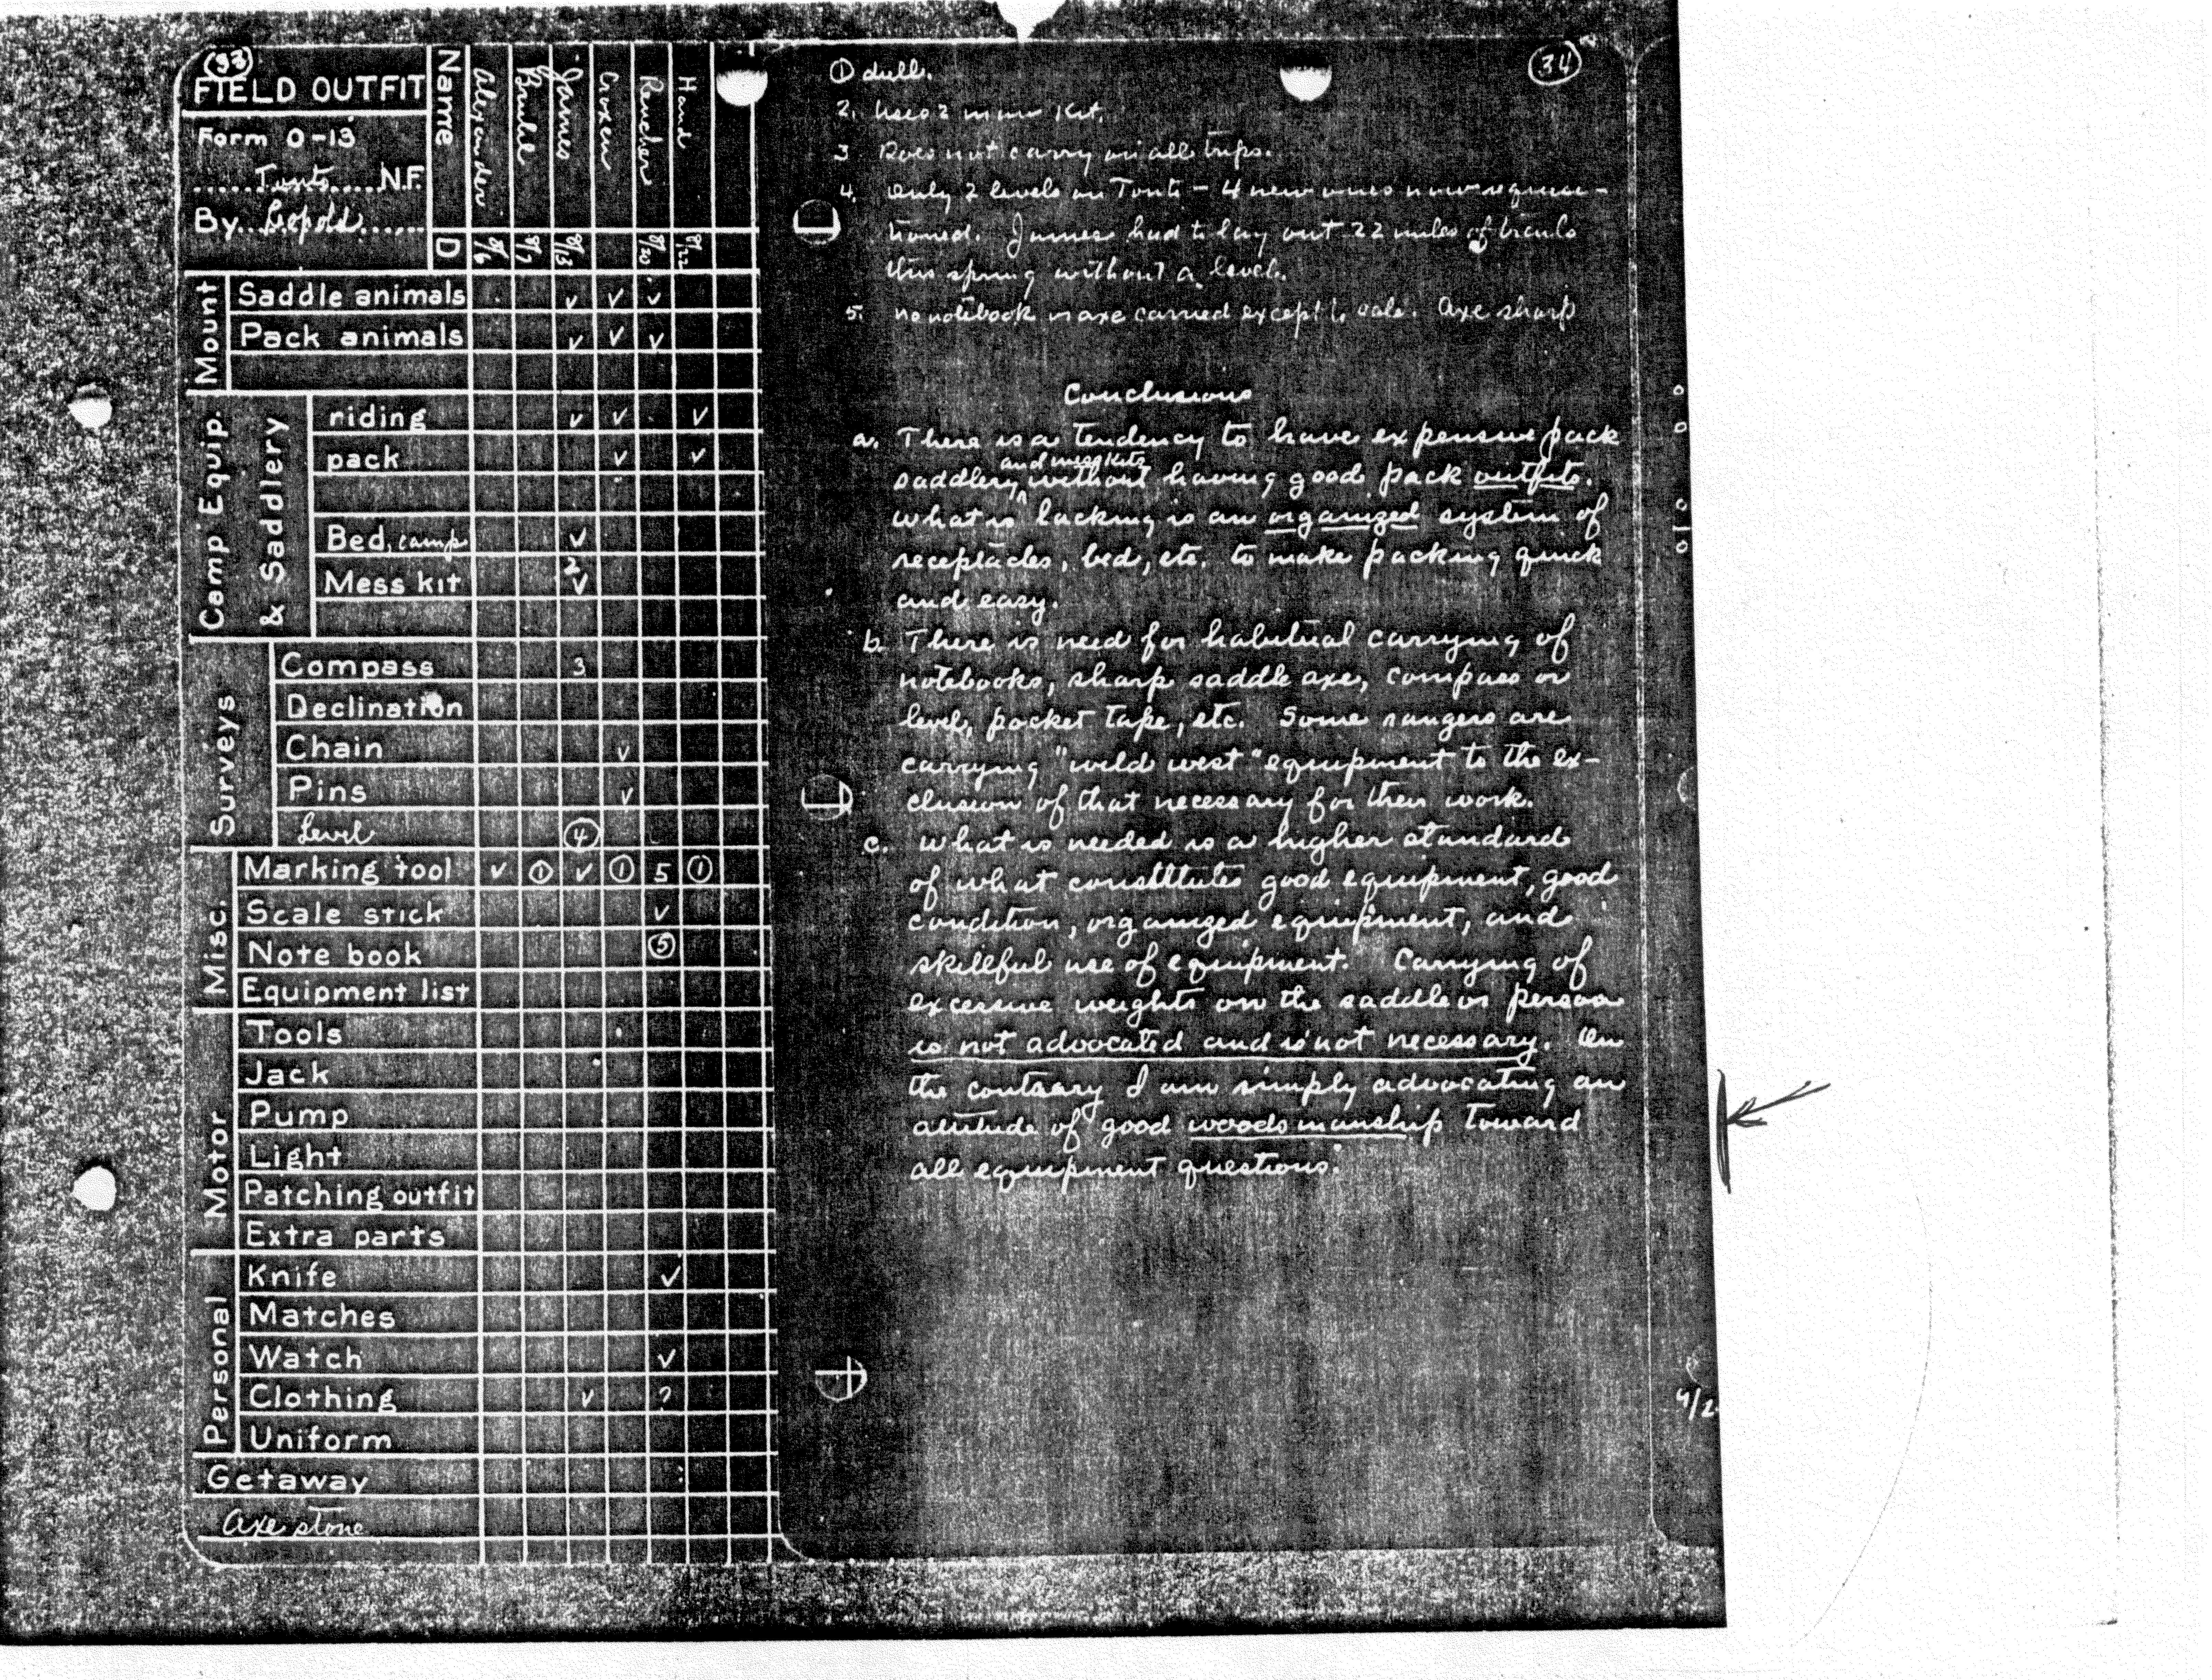 33
FIELD OUTFIT
Form O-13
Tonto N.F.
By Leopold
Name Alexander Bruhl James Croxen Rencher Hand
D 8/6 8/7 8/13 8/20 8/22
Mount
Saddle animals ✓ ✓ ✓
Pack animals ✓ ✓ ✓
Camp Equip. & Saddlery
riding ✓ ✓ ✓
pack ✓ ✓
Bed, camp ✓
Mess kit 2 ✓
Surveys
Compass 3
Declination
Chain ✓
Pins ✓
Level 4
Misc.
Marking tool ✓ 1 ✓ 1 5 1
Scale stick ✓
Note book 5
Equipment list
Motor
Tools
Jack
Pump
Light
Patching outfit
Extra parts
Personal
Knife ✓
Matches
Watch ✓
Clothing ✓ ?
Uniform
Getaway
Axe stone
34
1 dull.
2. Uses 2 man Kit.
3 Does not carry on all trips.
4. Only 2 levels on Tonto - 4 new ones now requisi-
tioned. James had to lay out 22 miles of trails
this spring without a level.
5. no notebook or axe carried except to sale. Axe sharp
Conclusions
a. There is a tendency to have expensive pack
saddlery and mess kits without having good pack outfits.
What is lacking is an organized system of
receptacles, bed, etc. to make packing quick
and easy.
b. There is need for habitual carrying of
notebooks, sharp saddle axe, compass or
level, pocket tape, etc. Some rangers are
carrying "wild west" equipment to the ex-
clusion of that necessary for their work.
c. What is needed is a higher standard
of what constitutes good equipment, good
condition, organized equipment, and
skillful use of equipment. Carrying of
excessive weights on the saddle or person
is not advocated and is not necessary. On
the contrary I am simply advocating an
attitude of good woodsmanship toward
all equipment questions.